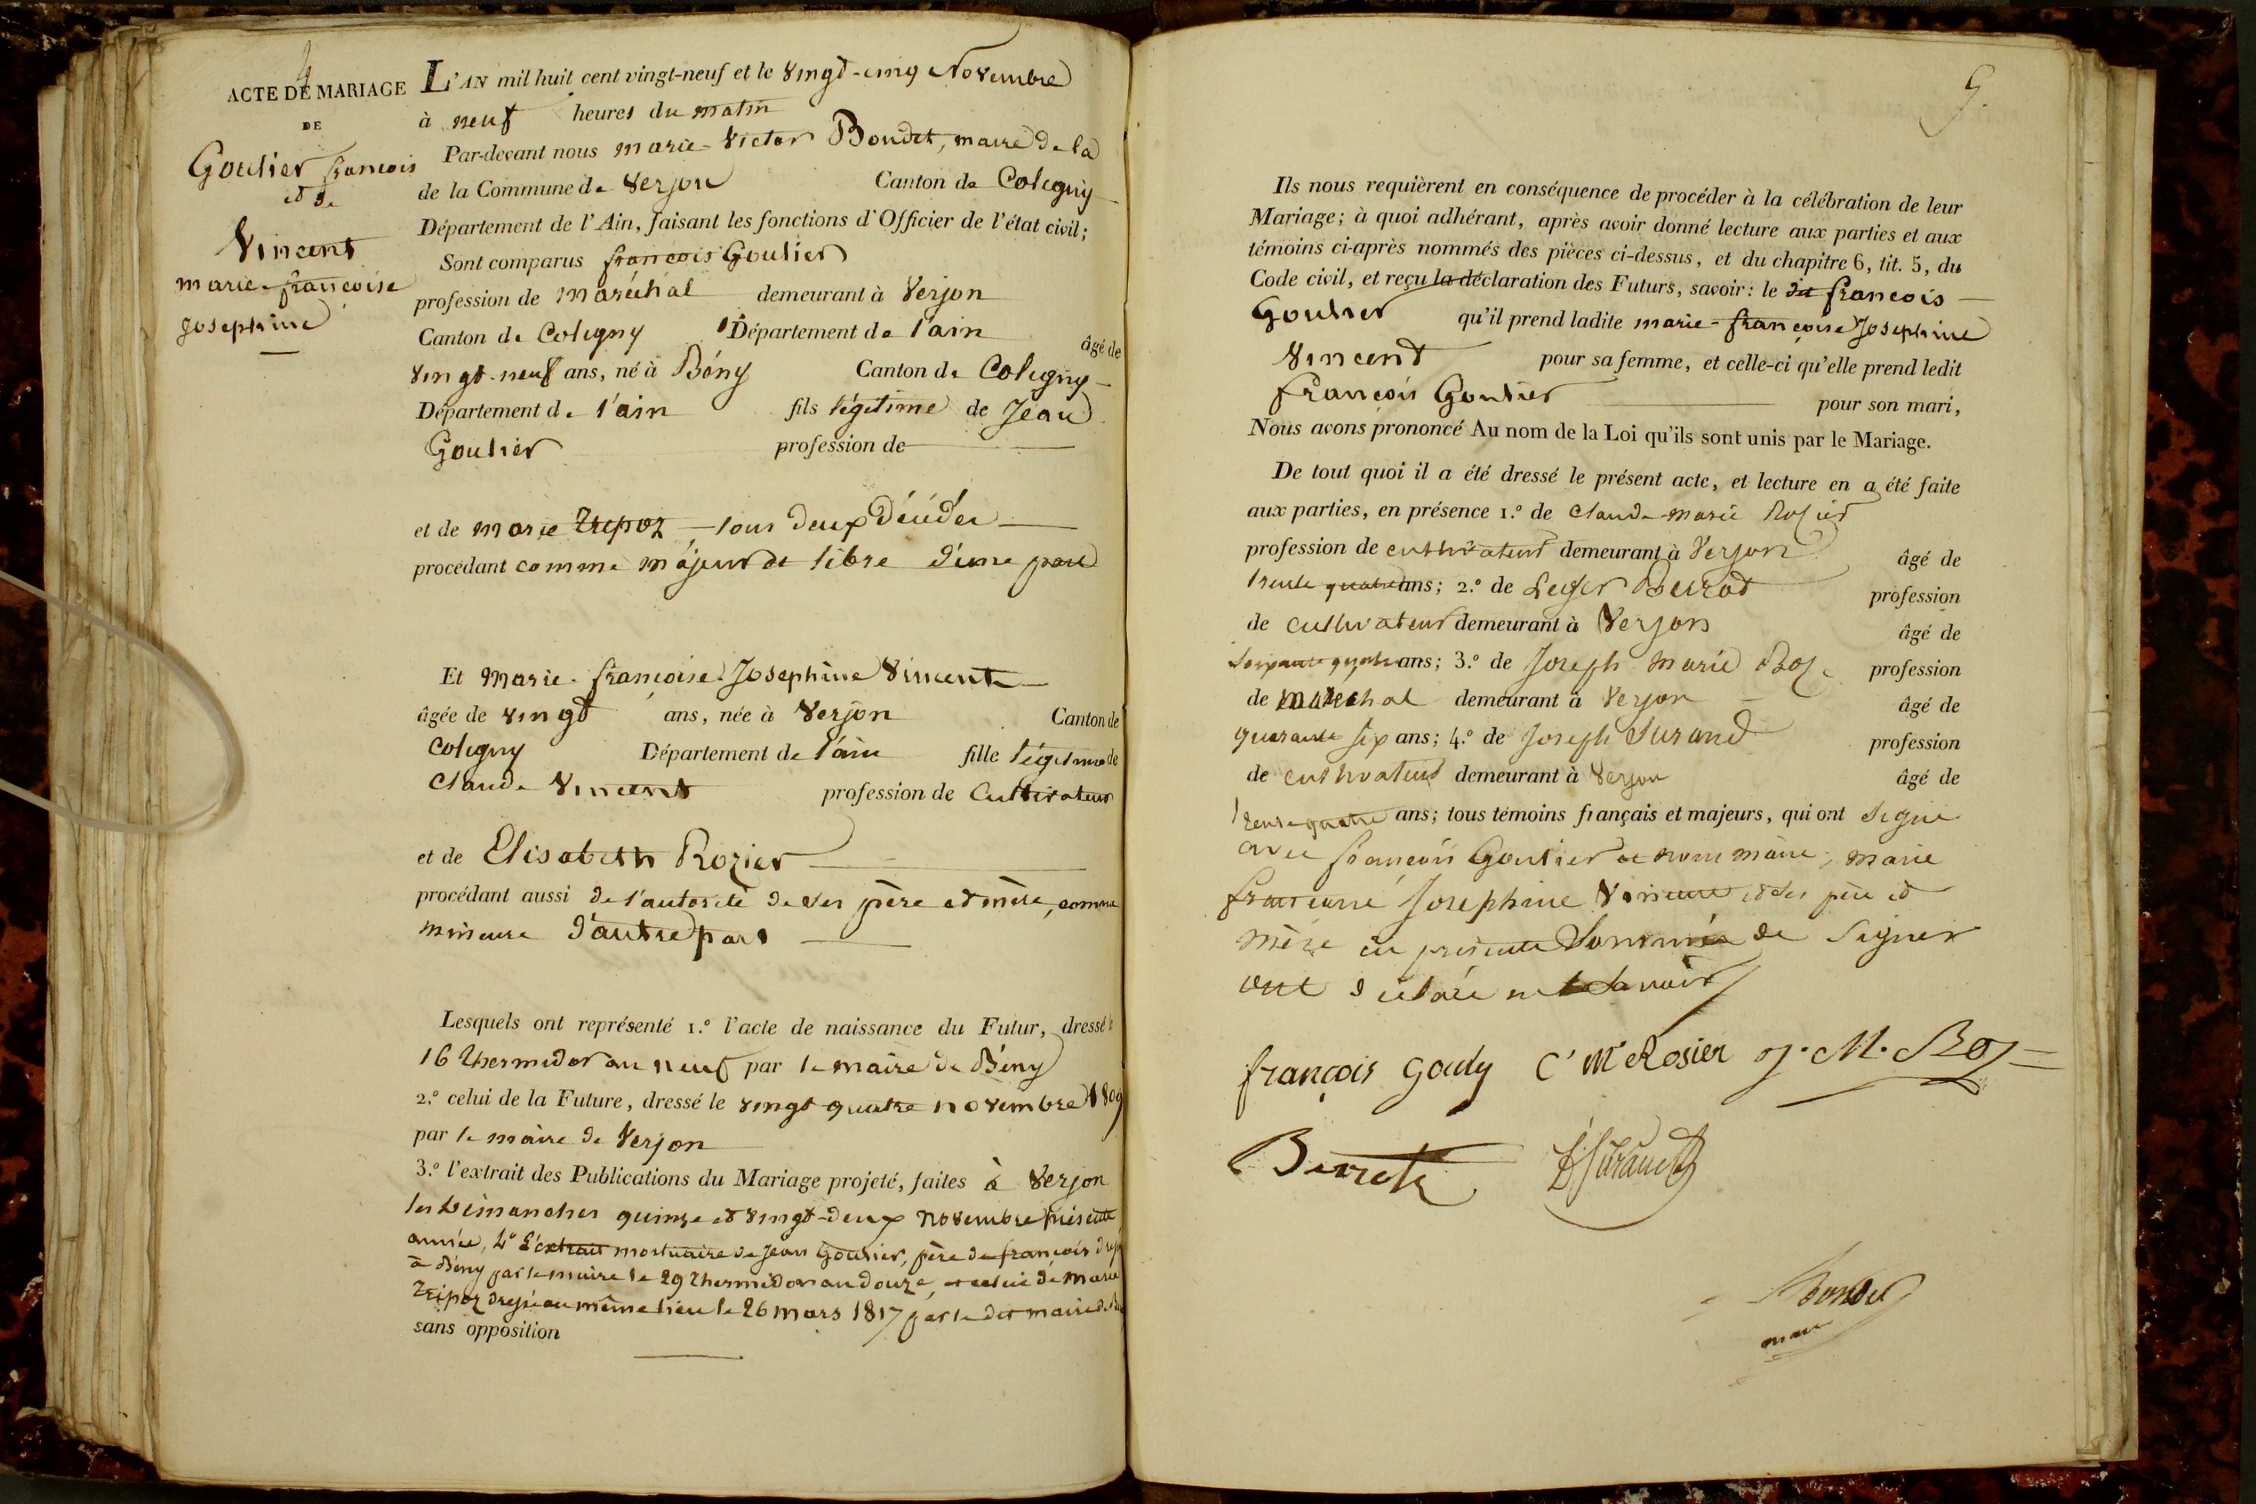 4
ACTE DE MARIAGE
DE
Goulier françois
et de
Vincent
marie-françoise
Josephine
L'AN mil huit cent vingt-neuf et le vingt-cinq Novembre
à neuf heures du matin
Par-devant nous marie-Victor Boudet, maire de la
de la Commune de Verjon Canton de Coligny
Département de l'Ain, faisant les fonctions d'Officier de l'état civil;
Sont comparus françois Goulier
profession de maréchal demeurant à Verjon
Canton de Coligny Département de l'ain âgé de
vingt-neuf ans, né à Bény Canton de Coligny
Département de l'ain fils légitime de Jean
Goulier profession de
et de marie Trepoz tous deux Décédés
procédant comme majeur et libre d'une part
Et Marie-françoise-Josephine Vincent
âgée de vingt ans, née à Verjon Canton de
Coligny Département de l'ain fille légitime de
Claude Vincent profession de Cultivateur
et de Elisabeth Rozier
procédant aussi de l'autorité de ses père et mère, comme
mineure d'autre part
Lesquels ont représenté 1.º l'acte de naissance du Futur, dressé le
16 thermidor an neuf par le maire de Bény
2.º celui de la Future, dressé le vingt quatre novembre 1809
par le maire de Verjon
3.º l'extrait des Publications du Mariage projeté, faites à Verjon
les Dimanches quinze et vingt-deux novembre présente
année, 4º L'extrait mortuaire de Jean Goulier, père de françois
à Bény par le maire le 29 thermidor an douze, et celui de marie
Trepoz dressé au même lieu le 26 mars 1817 par le dit maire
sans opposition
5.
Ils nous requièrent en conséquence de procéder à la célébration de leur
Mariage; à quoi adhérant, après avoir donné lecture aux parties et aux
témoins ci-après nommés des pièces ci-dessus, et du chapitre 6, tit. 5, du
Code civil, et reçu la déclaration des Futurs, savoir: le dit françois
Goulier qu'il prend ladite marie-françoise Josephine
Vincent pour sa femme, et celle-ci qu'elle prend ledit
françois Goulier pour son mari,
Nous avons prononcé Au nom de la Loi qu'ils sont unis par le Mariage.
De tout quoi il a été dressé le présent acte, et lecture en a été faite
aux parties, en présence 1.º de Claude-marie Rozier
profession de cultivateur demeurant à Verjon âgé de
trente quatre ans; 2.º de Leger Beuret profession
de cultivateur demeurant à Verjon âgé de
soixante quatre ans; 3.º de Joseph Marie Roz profession
de maréchal demeurant à Verjon âgé de
quarante six ans; 4.º de Joseph Surand profession
de cultivateur demeurant à Verjon âgé de
trente quatre ans; tous témoins français et majeurs, qui ont signé
avec françois Goulier et nous maire; marie
françoise Josephine Vincent et ses père et
mère ici présente Sommés de Signer
ont déclaré ne le savoir
françois Gouly C M Rosier J. M. Roz
Beurete Surand
Boudet
maire